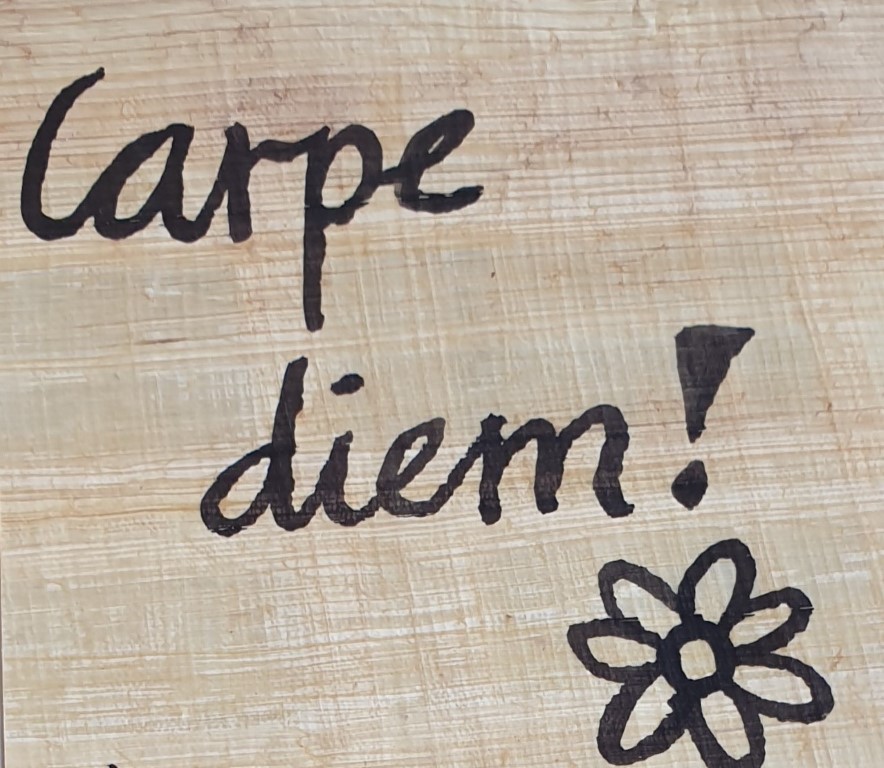 Carpe
diem!